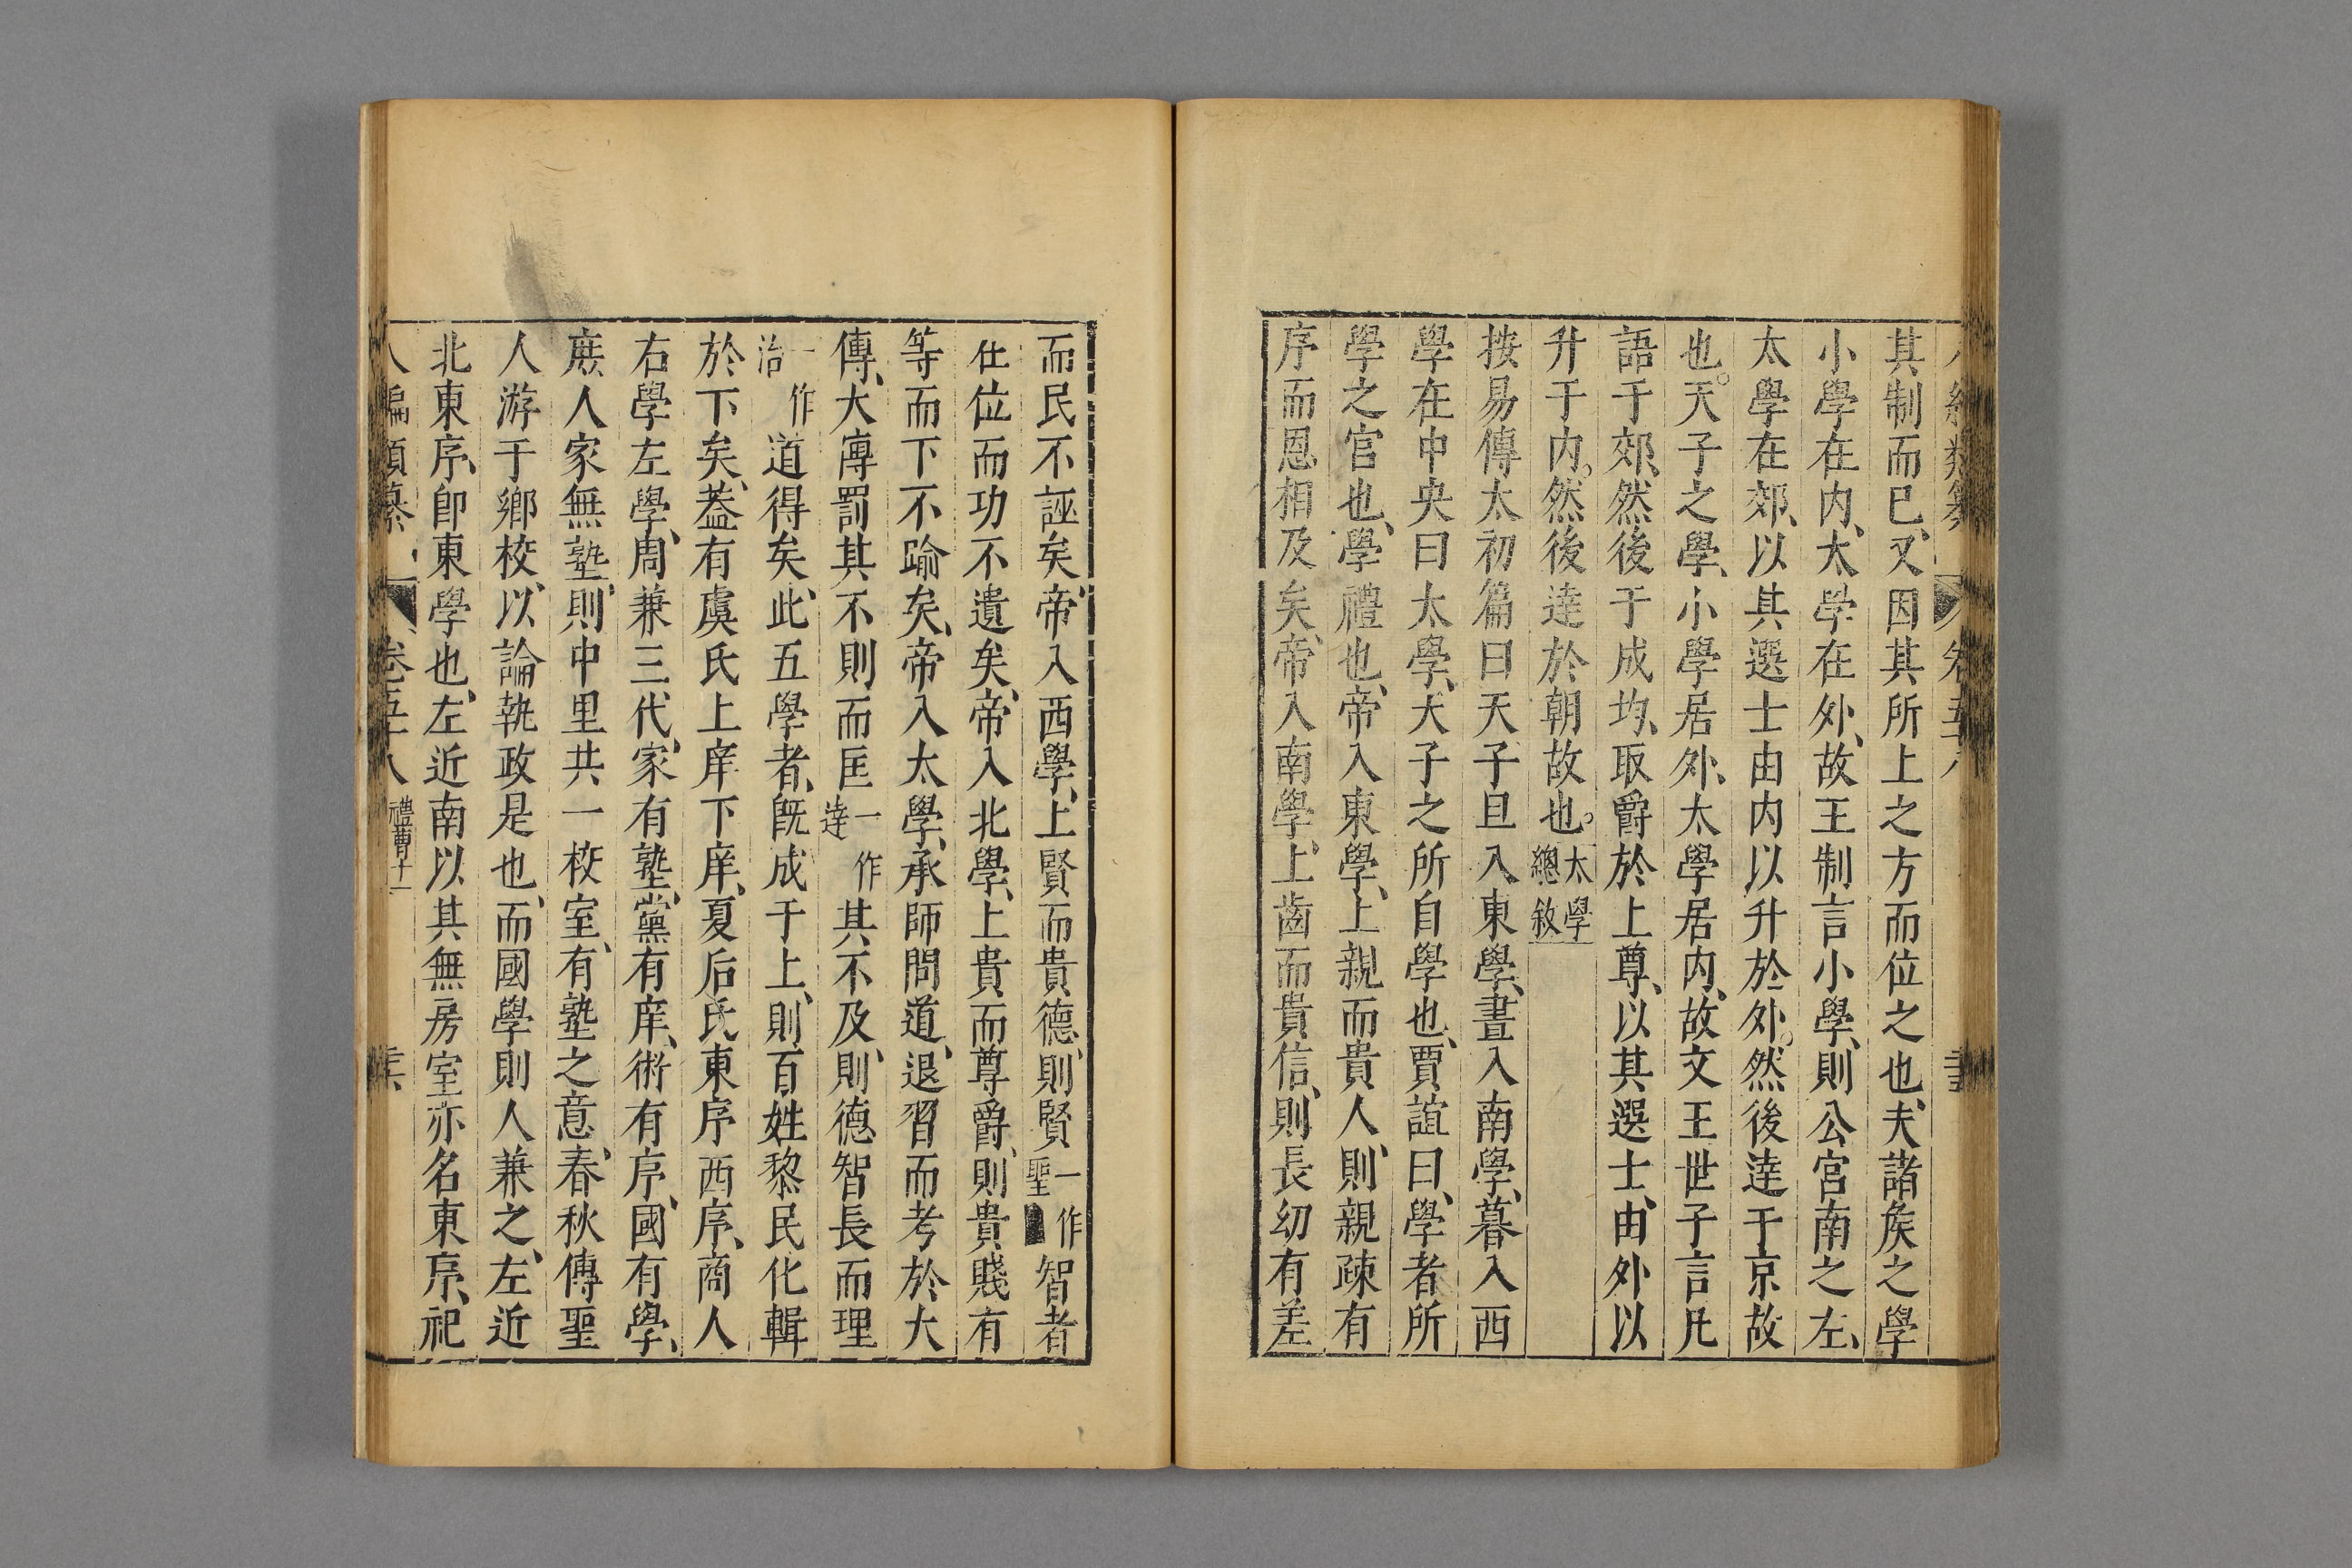 其制而已、又因其所上之方而位之也、夫諸矦之學
小學在内、太学在外、故王制言小學、則公宮南之左、
太學在郊、以其選士由内以升於外。然後達于京故
也。天子之學、小學居外、太學居内、故文王世子言凡
語于郊、然後于成均、取爵於上尊、以其選士、由外以
升于内。然後達於朝故也。太學總敘
按易傳太初篇曰天子旦入東學、晝入南學、暮入西
學在中央曰太學、天子之所自學也、賈誼曰、學者所
學之官也、學禮也、帝入東學、上親而貴人、則親疎有
序而恩相及矣、帝入南學、上齒而貴信、則長幼有差
而民不誣矣、帝入西學、上賢而貴德、則賢一作聖智者
在位而功不遺矣、帝入北學、上貴而尊爵、則貴賤有
等而下不踰矣、帝入太學、承師問道、退習而考於大
傳、大傳罰其不則而匡一作達其不及、則德智長而理
一作治道得矣、此五學者、旣成于上、則百姓黎民化輯
於下矣、蓋有虞氏上庠下庠、夏后氏東序西序、商人
右學左學、周兼三代、家有塾、黨有庠、術有序、國有學、
庶人家無塾、則中里共一校室、有塾之意、春秋傳聖
人游于鄉校、以論執政是也、而國學則人兼之、左近
北東序、卽東學也、左近南以其無房室亦名東序、祀
八編類纂 卷五十八 禮曹十一